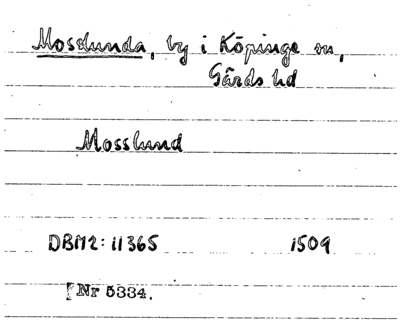 Mosslunda, by i Köpinge sn,
Gärds hd
Mosslund
DBM2: 11365 1509
[Nr 5334.